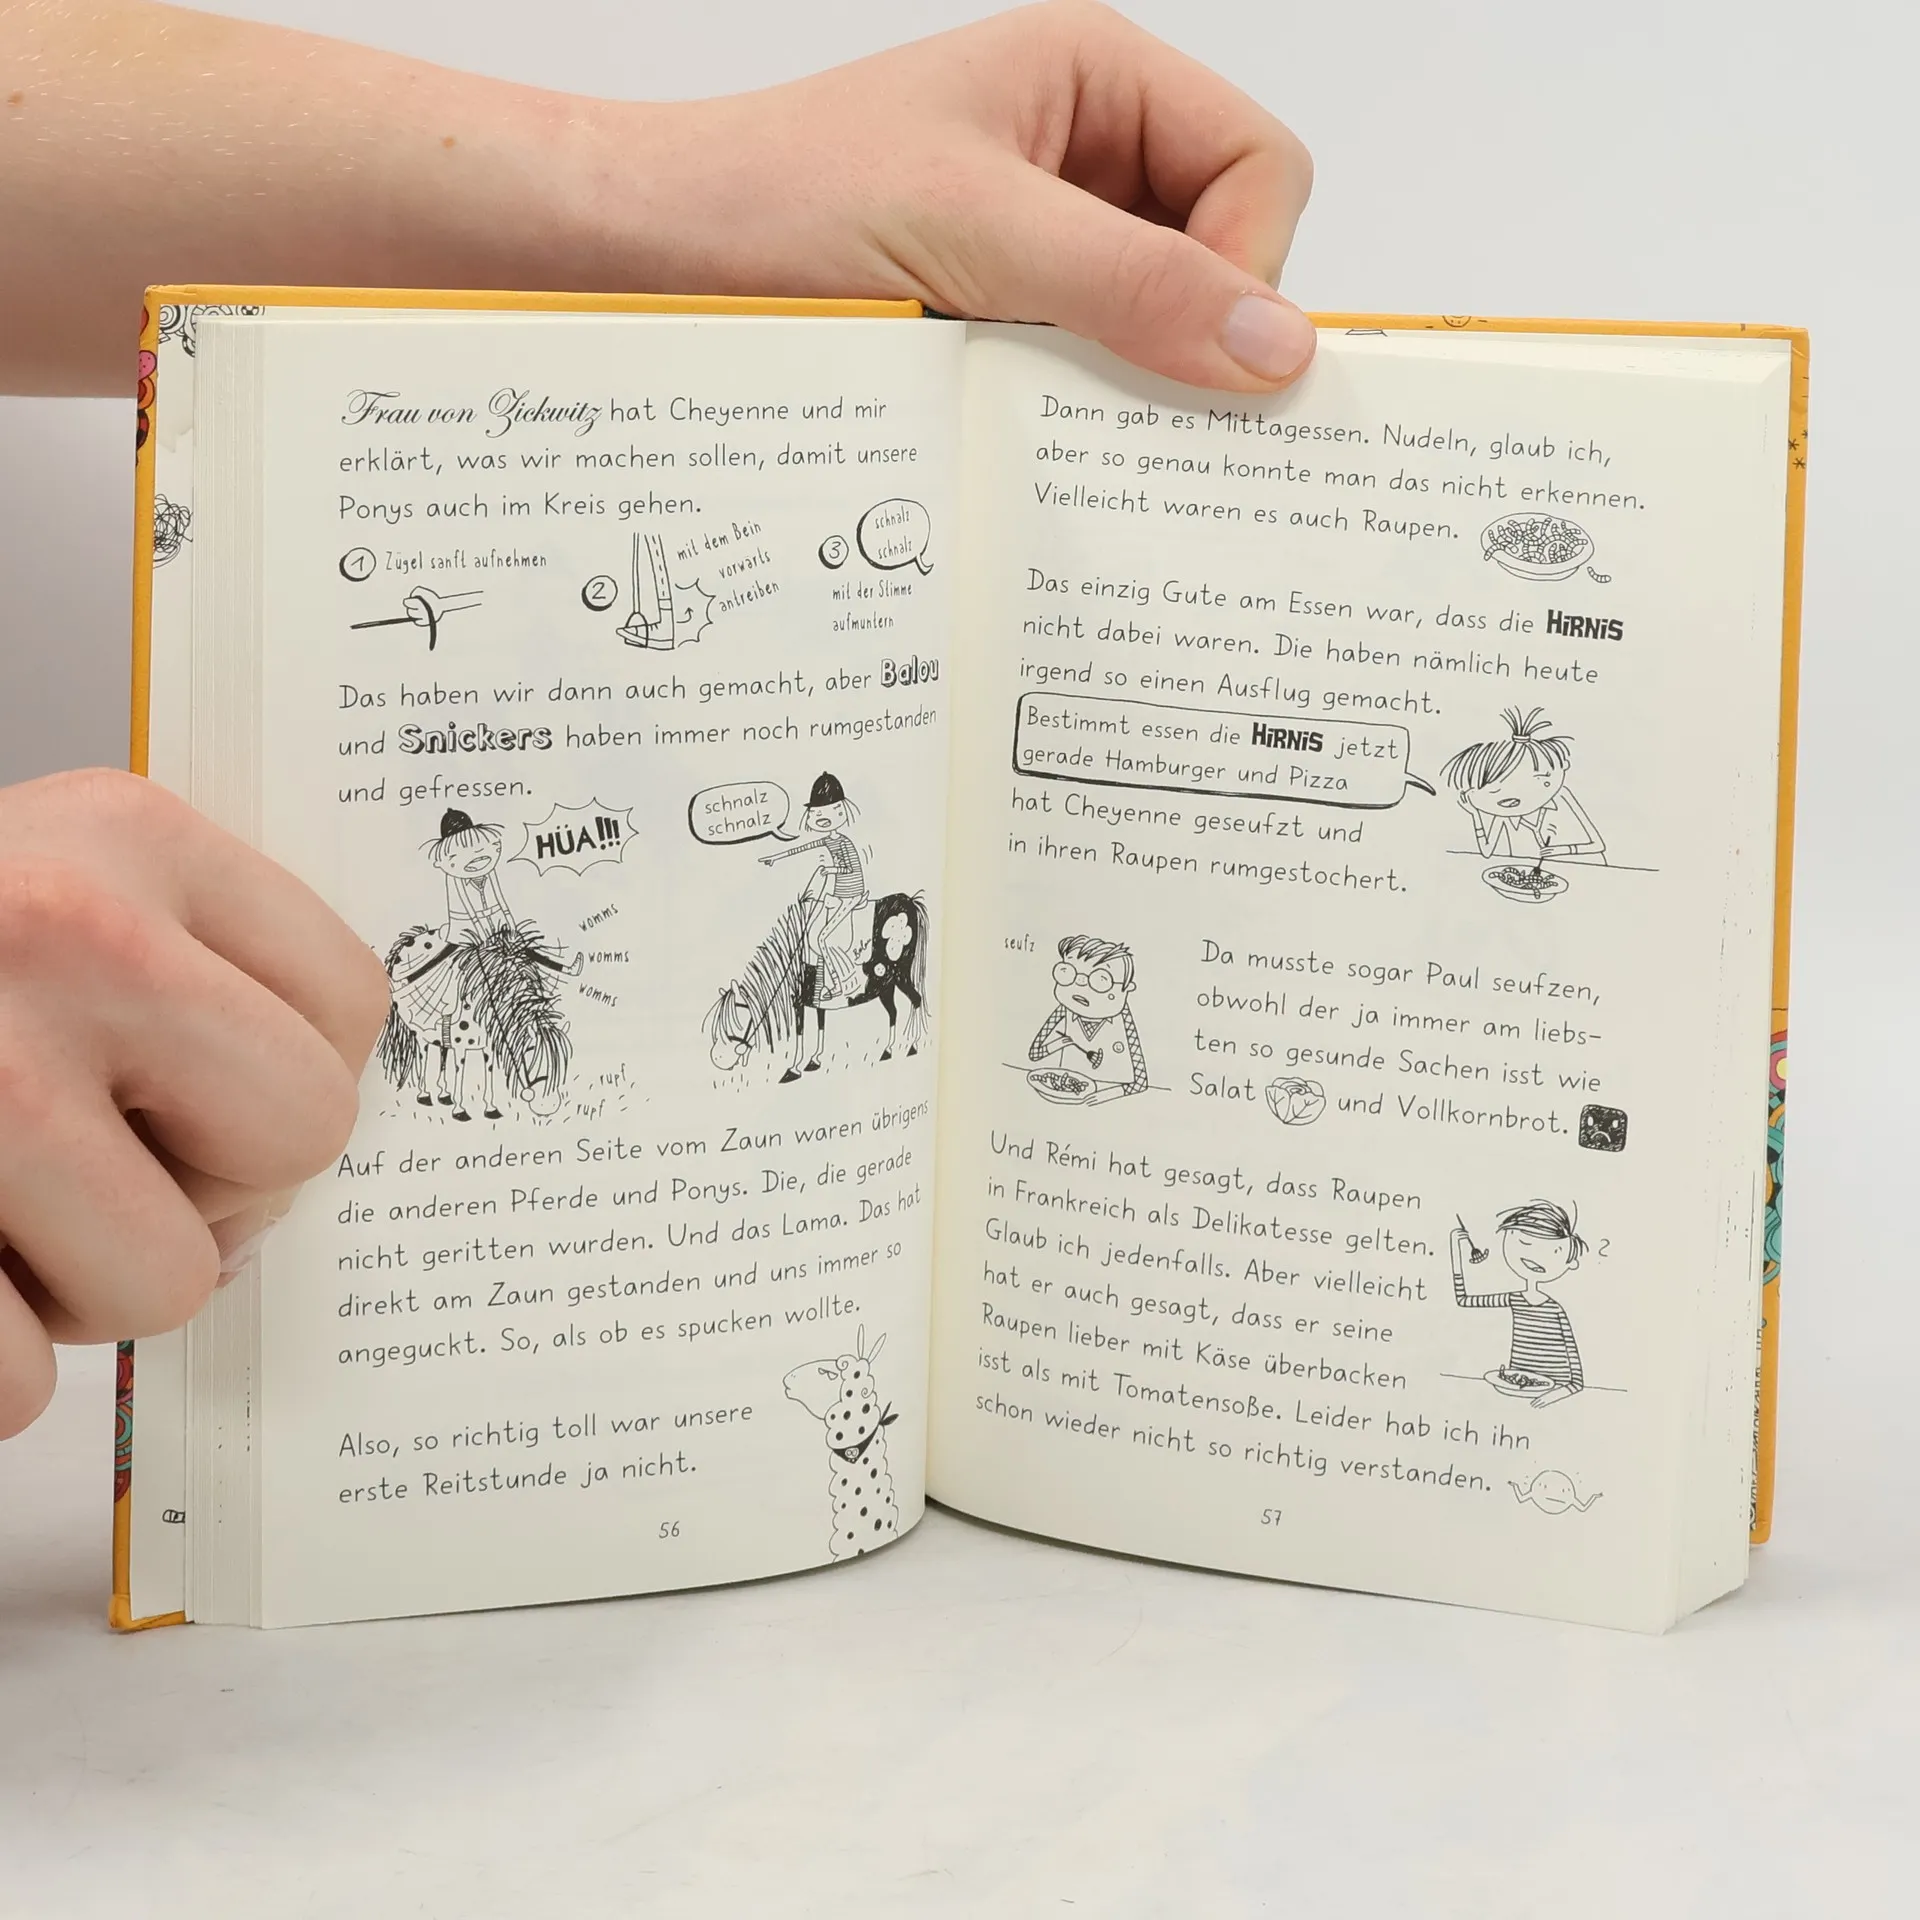 Frau von Zickwitz hat Cheyenne und mir
erklärt, was wir machen sollen, damit unsere
Ponys auch im Kreis gehen.
1 Zügel sanft aufnehmen
2 mit dem Bein
vorwärts
antreiben
3 schnalz
schnalz
mit der Stimme
aufmuntern
Das haben wir dann auch gemacht, aber Balou
und Snickers haben immer noch rumgestanden
und gefressen.
HÜA!!!
schnalz
schnalz
womms
womms
womms
Balou
rupf
rupf
Auf der anderen Seite vom Zaun waren übrigens
die anderen Pferde und Ponys. Die, die gerade
nicht geritten wurden. Und das Lama. Das hat
direkt am Zaun gestanden und uns immer so
angeguckt. So, als ob es spucken wollte.
Also, so richtig toll war unsere
erste Reitstunde ja nicht.
56
Dann gab es Mittagessen. Nudeln, glaub ich,
aber so genau konnte man das nicht erkennen.
Vielleicht waren es auch Raupen.
Das einzig Gute am Essen war, dass die HiRNiS
nicht dabei waren. Die haben nämlich heute
irgend so einen Ausflug gemacht.
Bestimmt essen die HiRNiS jetzt
gerade Hamburger und Pizza
hat Cheyenne geseufzt und
in ihren Raupen rumgestochert.
seufz
Da musste sogar Paul seufzen,
obwohl der ja immer am liebs-
ten so gesunde Sachen isst wie
Salat und Vollkornbrot.
Und Rémi hat gesagt, dass Raupen
in Frankreich als Delikatesse gelten.
Glaub ich jedenfalls. Aber vielleicht
hat er auch gesagt, dass er seine
Raupen lieber mit Käse überbacken
isst als mit Tomatensoße. Leider hab ich ihn
schon wieder nicht so richtig verstanden.
?
57